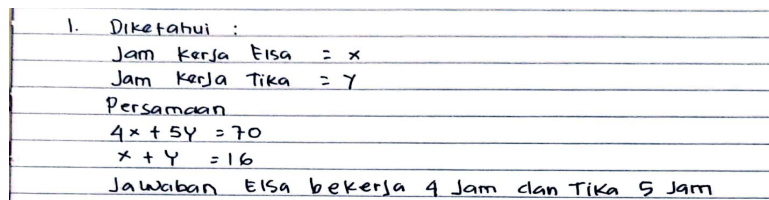 1. Diketahui :
Jam kerja Elsa = x
Jam kerja Tika = Y
Persamaan
4x + 5Y = 70
x + Y = 16
Jawaban Elsa bekerja 4 Jam dan Tika 5 Jam